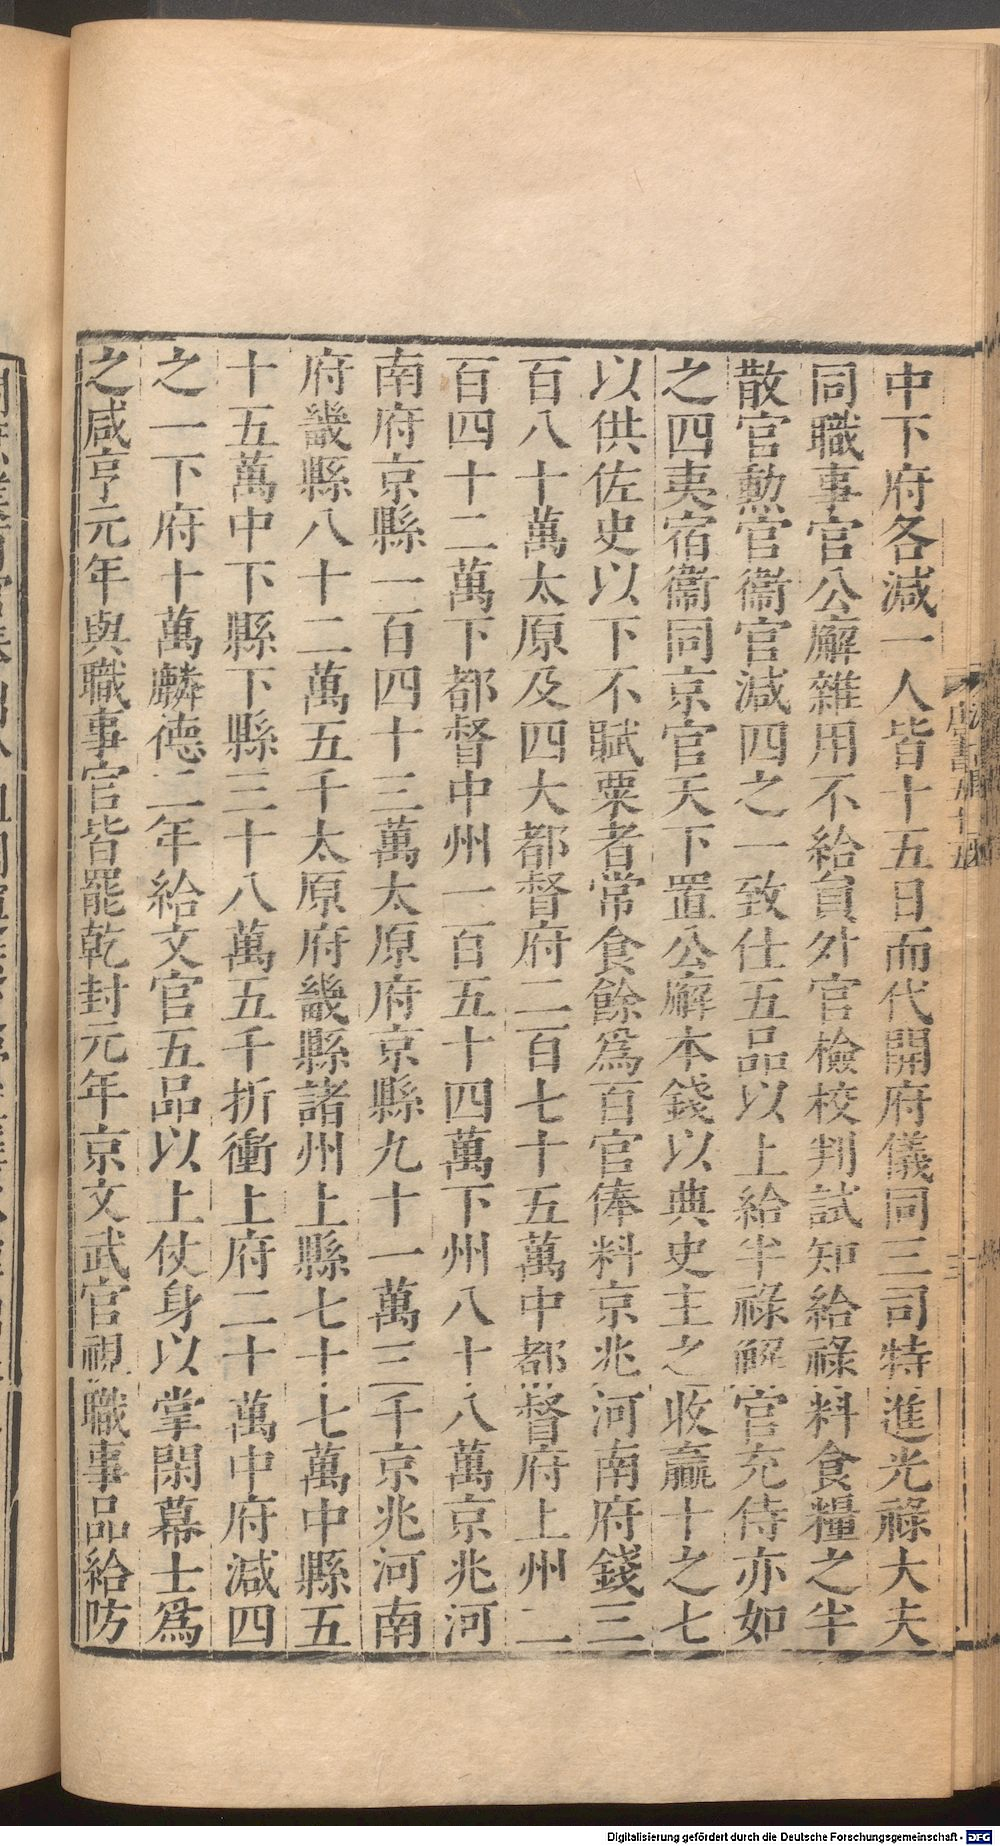 中下府各減一人皆十五日而代開府儀同三司特進光祿大夫
同職事官公廨雜用不給員外官檢校判試知給祿料食糧之半
散官勲官衞官減四之一致仕五品以上給半祿解官充侍亦如
之四夷宿衞同京官天下置公廨本錢以典史主之收贏十之七
以供佐史以下不賦粟者常食餘爲百官俸料京兆河南府錢三
百八十萬太原及四大都督府二百七十五萬中都督府上州二
百四十二萬下都督中州一百五十四萬下州八十八萬京兆河
南府京縣一百四十三萬太原府京縣九十一萬三千京兆河南
府畿縣八十二萬五千太原府畿縣諸州上縣七十七萬中縣五
十五萬中下縣下縣三十八萬五千折衝上府二十萬中府減四
之一下府十萬麟德二年給文官五品以上仗身以掌閑幕士爲
之咸亨元年與職事官皆罷乾封元年京文武官視職事品給防
Digitalisierung gefördert durch die Deutsche Forschungsgemeinschaft - DFG